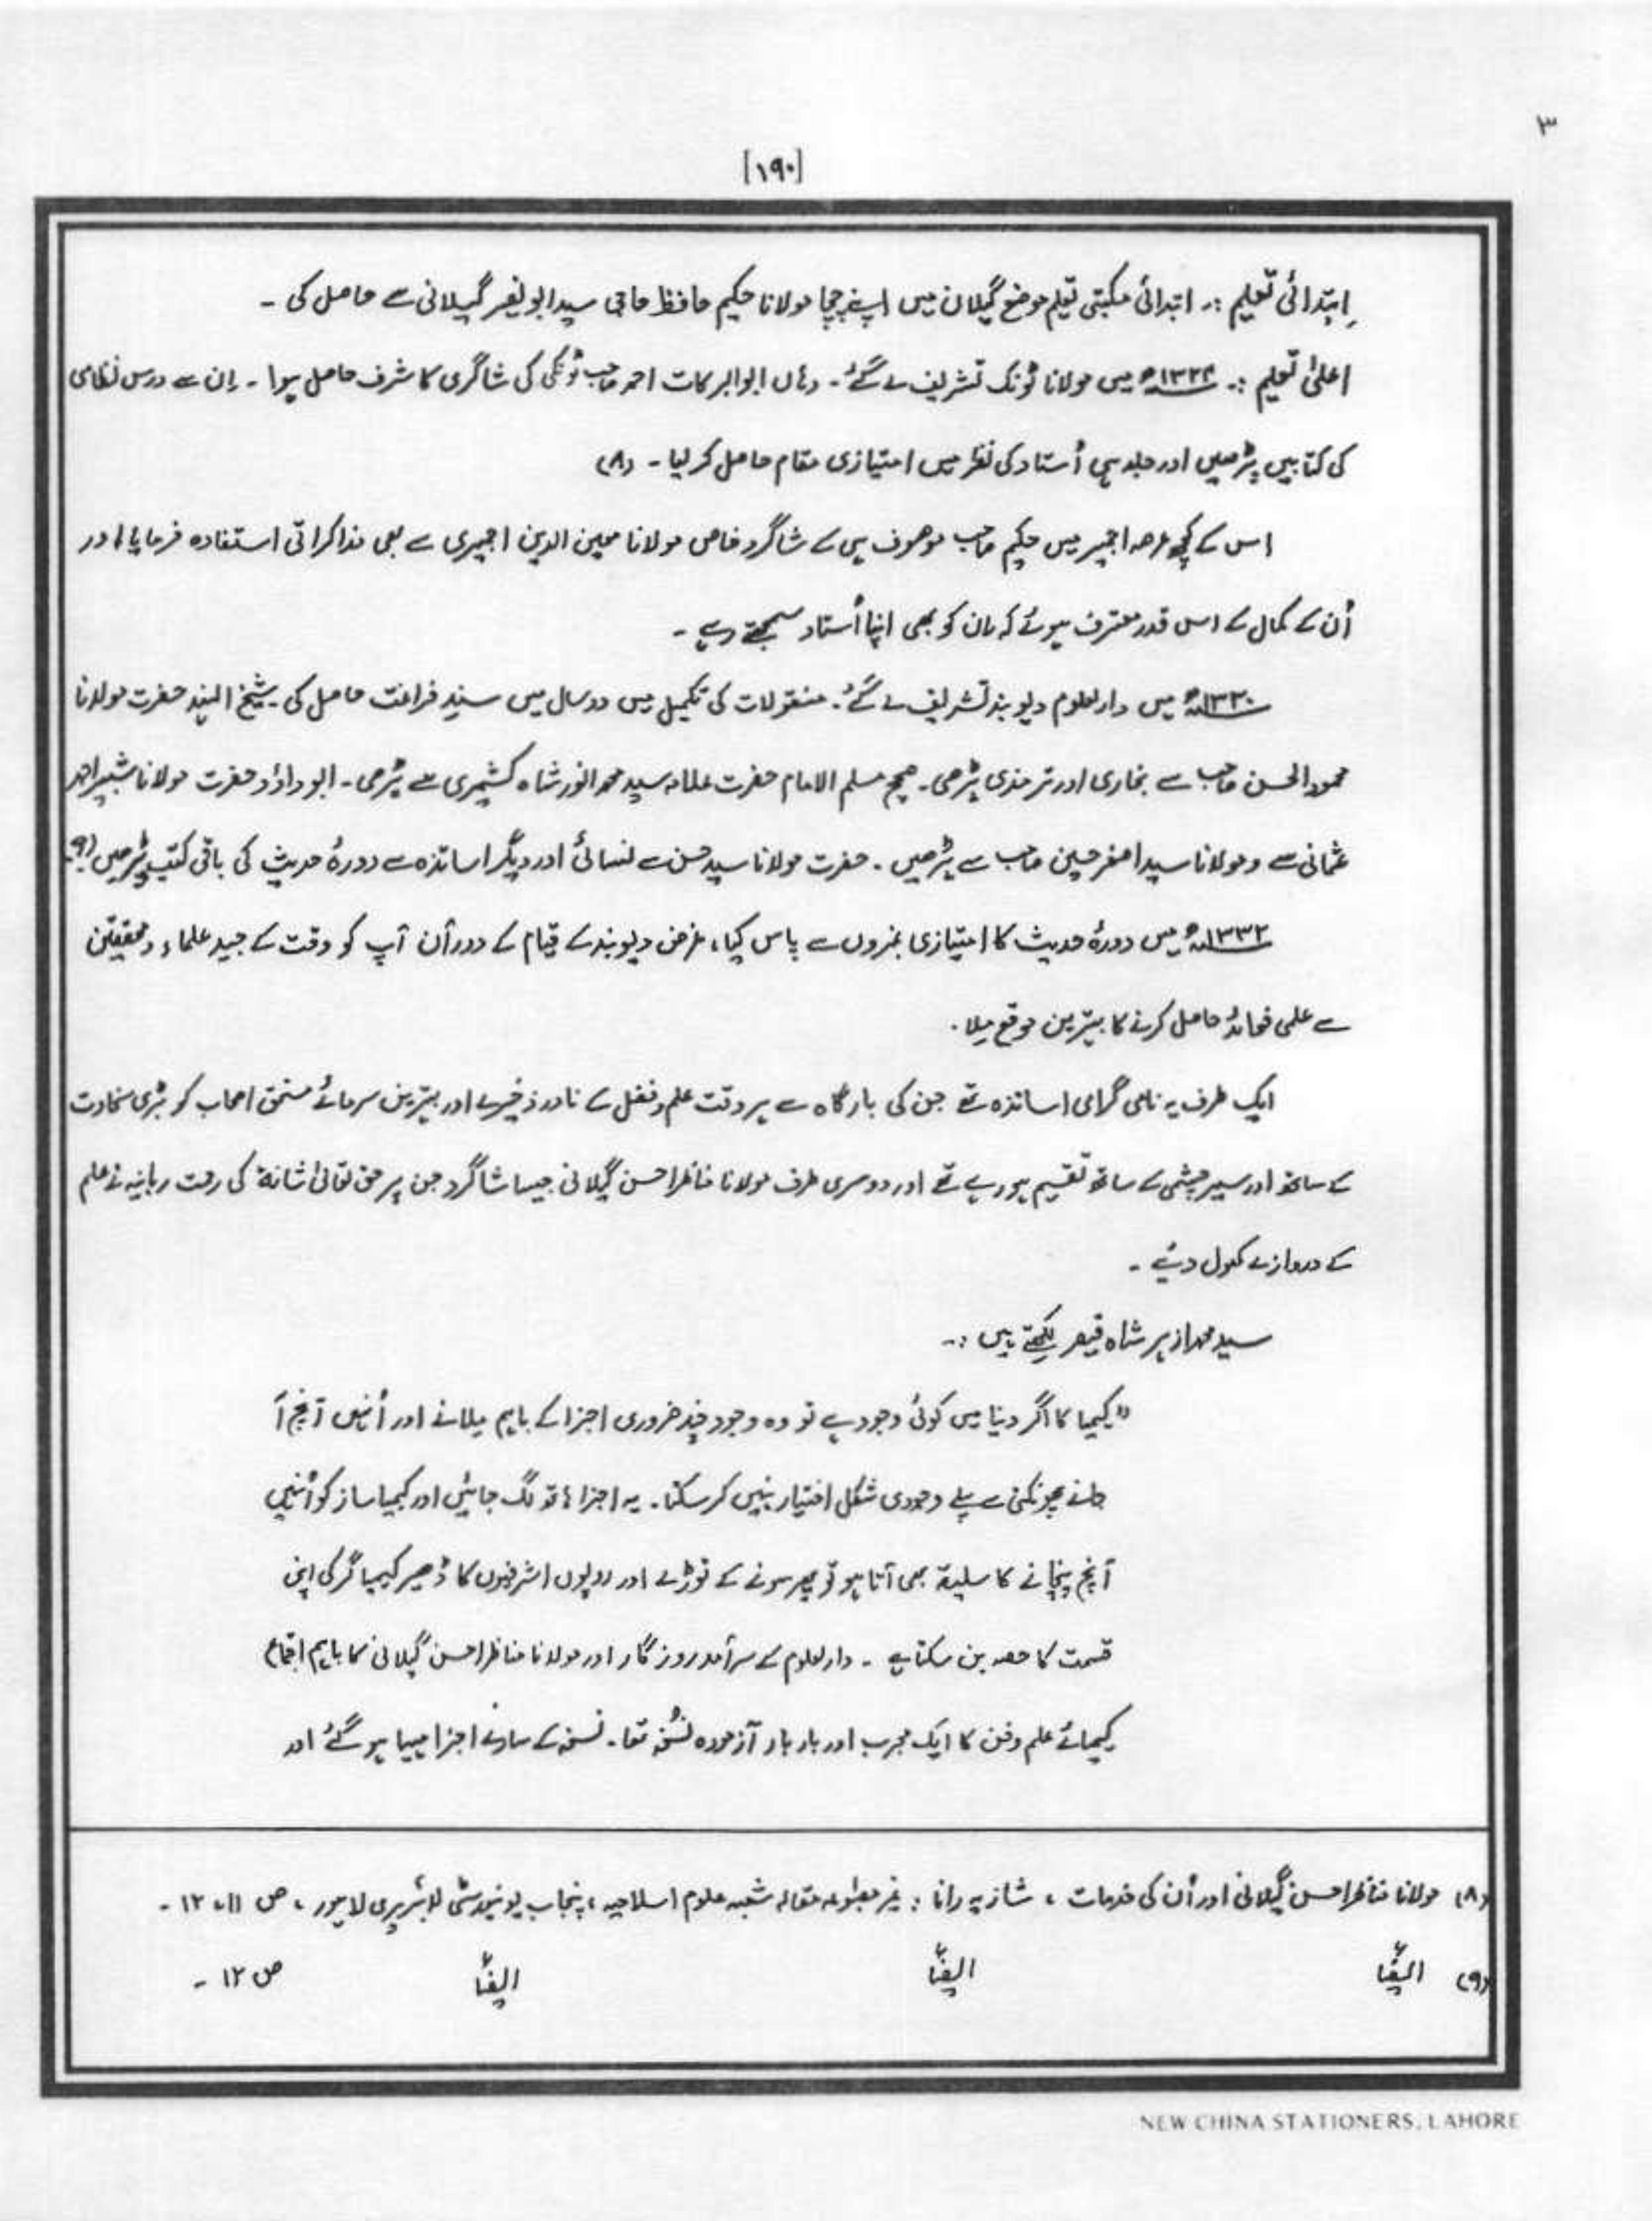 ۳
[۱۹۰]
اِبتدائی تعلیم :۔ ابتدائی مکتبی تعلیم موضع گیلان میں اپنے چچا مولانا حکیم حافظ حاجی سید ابو نصر گیلانی سے حاصل کی ۔
اعلیٰ تعلیم :۔ ۱۳۲۴ھ میں مولانا ٹونک تشریف لے گئے ۔ وہاں ابوالبرکات احمد صاحب ٹونکی کی شاگری کا شرف حاصل ہوا ۔ اِن سے درس نظامی
کی کتابیں پڑھیں اور جلد ہی اُستاد کی نظر میں امتیازی مقام حاصل کر لیا ۔ (۸)
اس کے کچھ عرصہ اجمیر میں حکیم صاحب موصوف ہی کے شاگرد خاص مولانا معین الدین اجمیری سے بھی مذاکراتی استفادہ فرمایا اور
اُن کے کمال کے اس قدر معترف ہوئے کہ ان کو بھی اپنا اُستاد سمجھتے رہے ۔
۱۳۳۰ھ میں دارالعلوم دیوبند تشریف لے گئے ۔ منقولات کی تکمیل میں دو سال میں سندِ فراغت حاصل کی ۔ شیخ الہند حضرت مولانا
محمود الحسن صاحب سے بخاری اور ترمذی پڑھی ۔ صحیح مسلم الامام حضرت علامہ سید محمد انور شاہ کشمیری سے پڑھی ۔ ابو داؤد حضرت مولانا شبیر احمد
عثمانی سے و مولانا سید اصغر حسین صاحب سے پڑھیں ۔ حضرت مولانا سید حسن سے نسائی اور دیگر اساتذہ سے دورۂ حدیث کی باقی کتب پڑھیں (۹)
۱۳۳۲ھ میں دورۂ حدیث کا امتیازی نمبروں سے پاس کیا ، غرض دیوبند کے قیام کے دورأن آپ کو وقت کے جید علماء و محققین
سے علمی فوائد حاصل کرنے کا بہترین موقع مِلا ۔
ایک طرف یہ نامی گرامی اساتذہ تھے جن کی بارگاہ سے ہر وقت علم و فضل کے نادر ذخیرے اور بہترین سرمائے مستحق اصحاب کو بڑی سخاوت
کے ساتھ اور سیر چشمی کے ساتھ تقسیم ہو رہے تھے اور دوسری طرف مولانا مناظر احسن گیلانی جیسا شاگرد جن پر حق تعالیٰ شانہٗ کی رحمت ربانیہ نے علم
کے دروازے کھول دیئے ۔
سید محمد ازہر شاہ قیصر لکھتے ہیں :۔
"کیمیا کا اگر دنیا میں کوئی وجود ہے تو وہ وجود چند ضروری اجزا کے باہم مِلانے اور اُنہیں آنچ آ
جانے پھونکنی سے پہلے وجودی شکل اختیار نہیں کر سکتا ۔ یہ اجزا ہاتھ لگ جائیں اور کیمیا ساز کو اُنہیں
آنچ پہنچانے کا سلیقہ بھی آتا ہو تو پھر سونے کے توڑے اور روپوں اشرفیوں کا ڈھیر کیمیا گر کی اپنی
قسمت کا حصہ بن سکتا ہے ۔ دارالعلوم کے سرآمد روزگار اور مولانا مناظر احسن گیلانی کا باہم اجتماع
کیمیائے علم و فن کا ایک مجرب اور بار بار آزمودہ نُسخہ تھا ۔ نسخہ کے سارے اجزا مہیا ہو گئے اور
(۸) مولانا مناظر احسن گیلانی اور اُن کی خدمات ، شازیہ رانا : غیر مطبوعہ مقالہ شعبہ علوم اسلامیہ ، پنجاب یونیورسٹی لائبریری لاہور ، ص ۱۱، ۱۲ ۔
(۹) ایضاً ایضاً ایضاً ص ۱۲ ۔
NEW CHINA STATIONERS, LAHORE